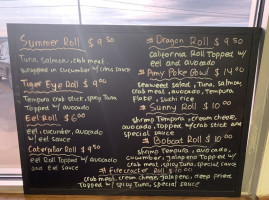 Summer Roll $ 9.50
Tuna, salmon, crab meat
wrapped in cucumber w/ citrus sauce
Tiger Eye Roll $ 9.00
Tempura crab stick, spicy tuna
Topped w/ avocado
Eel Roll $ 6.00
eel, cucumber, avocado
w/ eel sauce
Caterpillar Roll $ 9.50
eel Roll Topped w/ avocado
and eel sauce
Dragon Roll $ 9.50
California Roll Topped w/
eel and avocado
Amy Poke Bowl $ 14.00
seaweed salad, Tuna, salmon,
crab meat, avocado, Tempura
flake, sushi rice
Sunny Roll $ 10.00
shrimp Tempura, cream cheese,
avocado, Topped w/ crab stick and
special sauce
Bobcat Roll $ 10.00
shrimp Tempura, avocado,
cucumber, jalapeno Topped w/
crab meat, spicy Tuna, special sauce
Firecracker Roll $ 10.00
crab meat, cream cheese, jalapeno, deep fried
Topped w/ spicy Tuna, special sauce